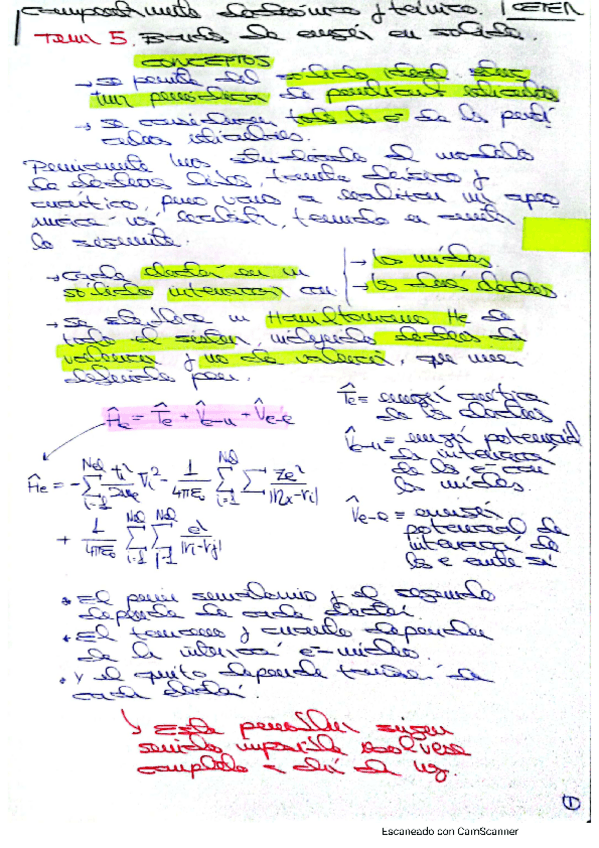 comportamiento electrónico y térmico. | CETEM
Tema 5. Bandas de energía en sólidos.
CONCEPTOS
→ se permite del sólido ideal: estructura periódica de
→ se consideran todos los e⁻ de las partí
culas
Previamente hemos estudiado el modelo
de electrones libres, tanto clásico y
cuántico, pero vamos a realizar una apro
más realista, teniendo en cuenta
lo siguiente.
→ Cada electrón en un | → los núcleos
sólido interacciona con | → los demás electrones
→ se establece un Hamiltoniano He de
todo el sistema, incluyendo electrones de
valencia y no de valencia, que viene
definido por:
Ĥe = T̂e + V̂e-n + V̂e-e
T̂e = energía cinética
de los electrones
V̂e-n = energía potencial
de interacción
de los e⁻ con
los núcleos.
V̂e-e = energía
potencial de
interacción de
los e⁻ entre sí
Ĥe = -∑ ħ²/2me ∇i² - 1/4πε₀ ∑ ∑ Ze²/|rα-ri|
+ 1/4πε₀ ∑ ∑ e²/|ri-rj|
• El primer y el segundo
depende de cada electrón.
• El tercero y cuarto dependen
de la interacción e⁻-núcleo.
• Y el quinto depende también de
cada electrón.
↳ Este problema sigue
siendo imposible resolverse
completo a día de hoy.
1
Escaneado con CamScanner